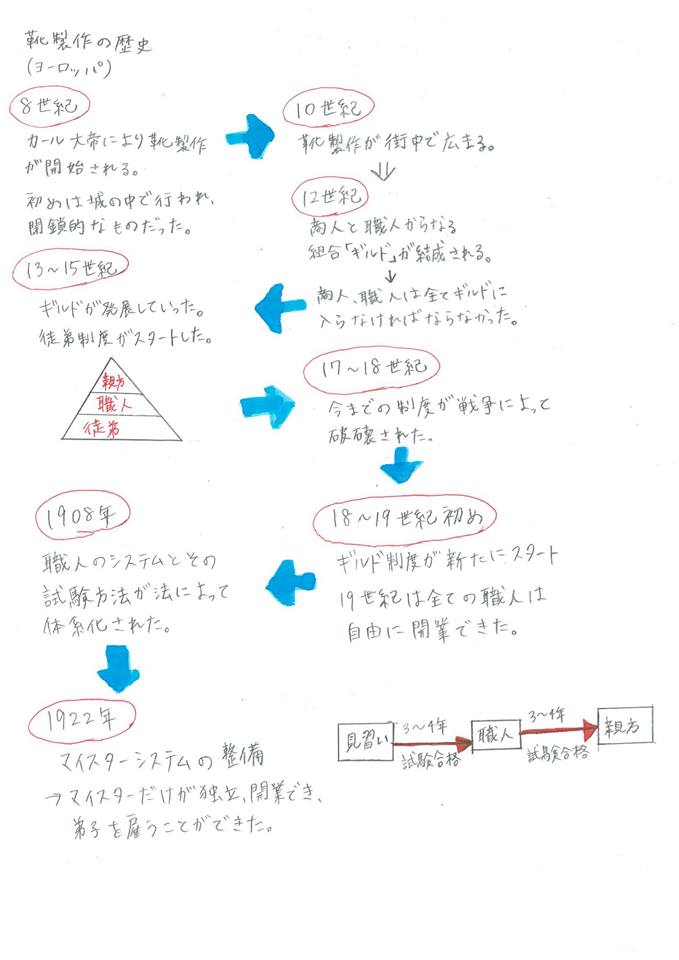 靴製作の歴史
(ヨーロッパ)
8世紀
カール大帝により靴製作
が開始される。
初めは城の中で行われ、
閉鎖的なものだった。
10世紀
靴製作が街中で広まる。
12世紀
商人と職人からなる
組合「ギルド」が結成される。
商人、職人は全てギルドに
入らなければならなかった。
13~15世紀
ギルドが発展していった。
徒弟制度がスタートした。
親方
職人
徒弟
17~18世紀
今までの制度が戦争によって
破壊された。
18~19世紀初め
ギルド制度が新たにスタート
19世紀は全ての職人は
自由に開業できた。
1908年
職人のシステムとその
試験方法が法によって
体系化された。
1922年
マイスターシステムの整備
→マイスターだけが独立、開業でき、
弟子を雇うことができた。
見習い
3~4年
試験合格
職人
3~4年
試験合格
親方